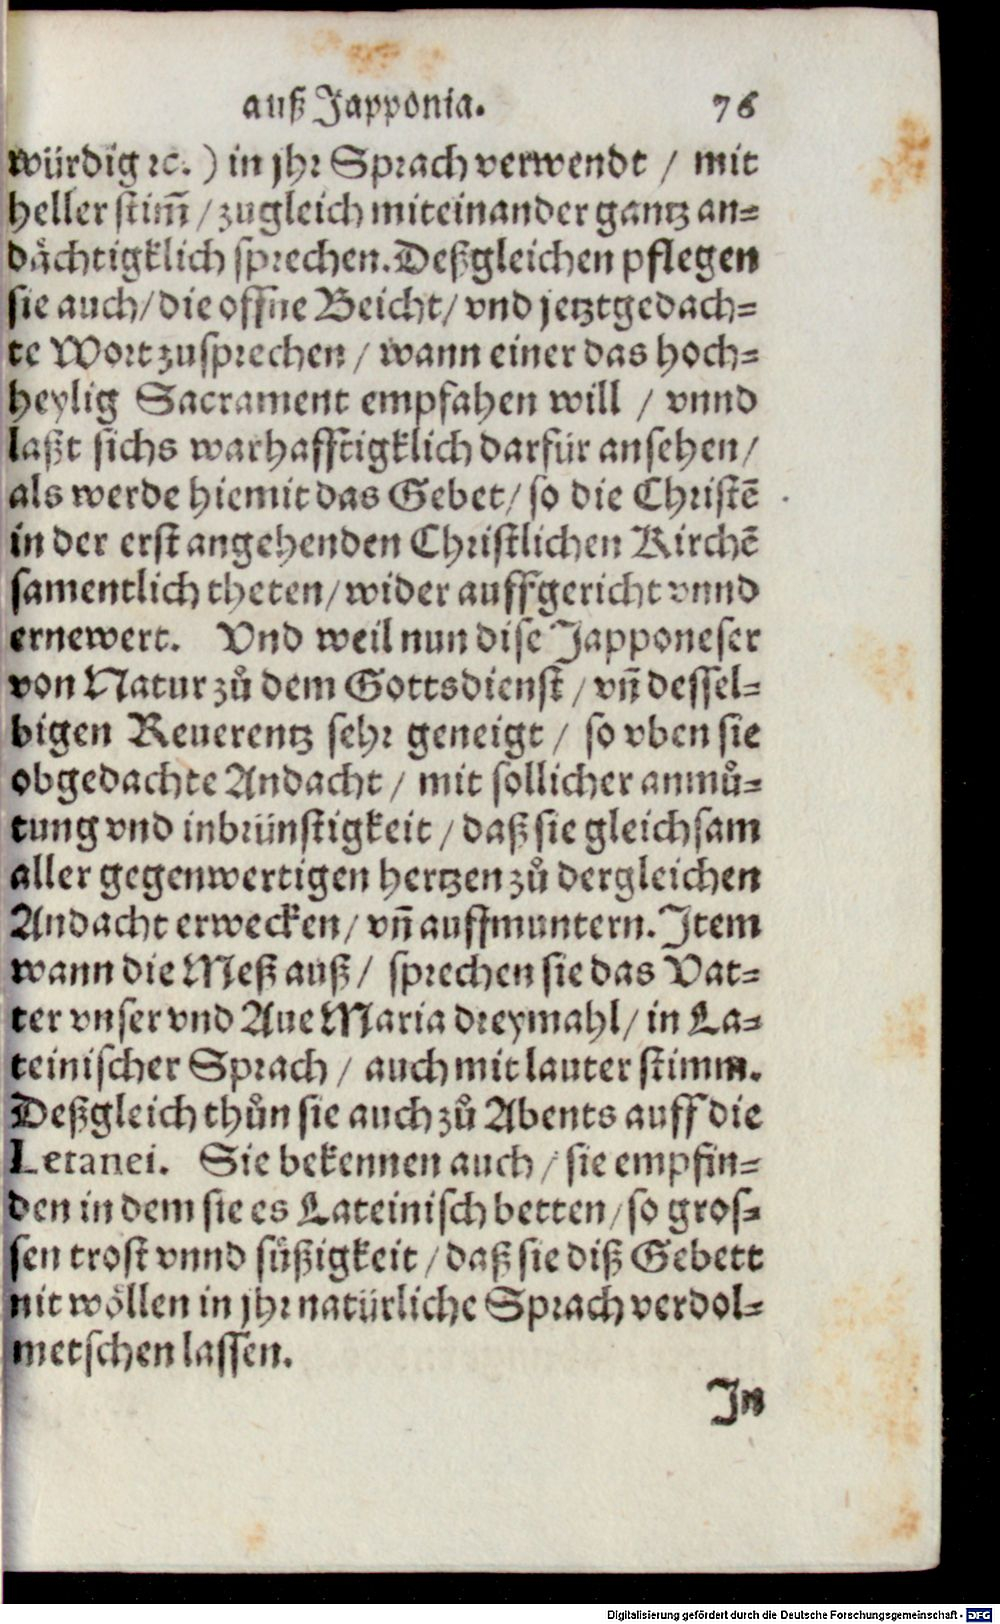 auß Japponia. 76
würdig ꝛc. ) in jhr Sprach verwendt / mit
heller stim̃ / zugleich miteinander gantz an-
dächtigklich sprechen. Deßgleichen pflegen
sie auch / die offne Beicht / vnd jetztgedach-
te Wort zusprechen / wann einer das hoch-
heylig Sacrament empfahen will / vnnd
laßt sichs warhafftigklich darfür ansehen /
als werde hiemit das Gebet / so die Christē
in der erst angehenden Christlichen Kirchē
samentlich theten / wider auffgericht vnnd
ernewert. Vnd weil nun dise Japponeser
von Natur zů dem Gottsdienst / vñ dessel-
bigen Reuerentz sehr geneigt / so vben sie
obgedachte Andacht / mit sollicher anmů-
tung vnd inbrünstigkeit / daß sie gleichsam
aller gegenwertigen hertzen zů dergleichen
Andacht erwecken / vñ auffmuntern. Item
wann die Meß auß / sprechen sie das Vat-
ter vnser vnd Aue Maria dreymahl / in La-
teinischer Sprach / auch mit lauter stimm.
Deßgleich thůn sie auch zů Abents auff die
Letanei. Sie bekennen auch / sie empfin-
den in dem sie es Lateinisch betten / so gros-
sen trost vnnd süßigkeit / daß sie diß Gebett
nit wöllen in jhr natürliche Sprach verdol-
metschen lassen.
In
Digitalisierung gefördert durch die Deutsche Forschungsgemeinschaft - DFG